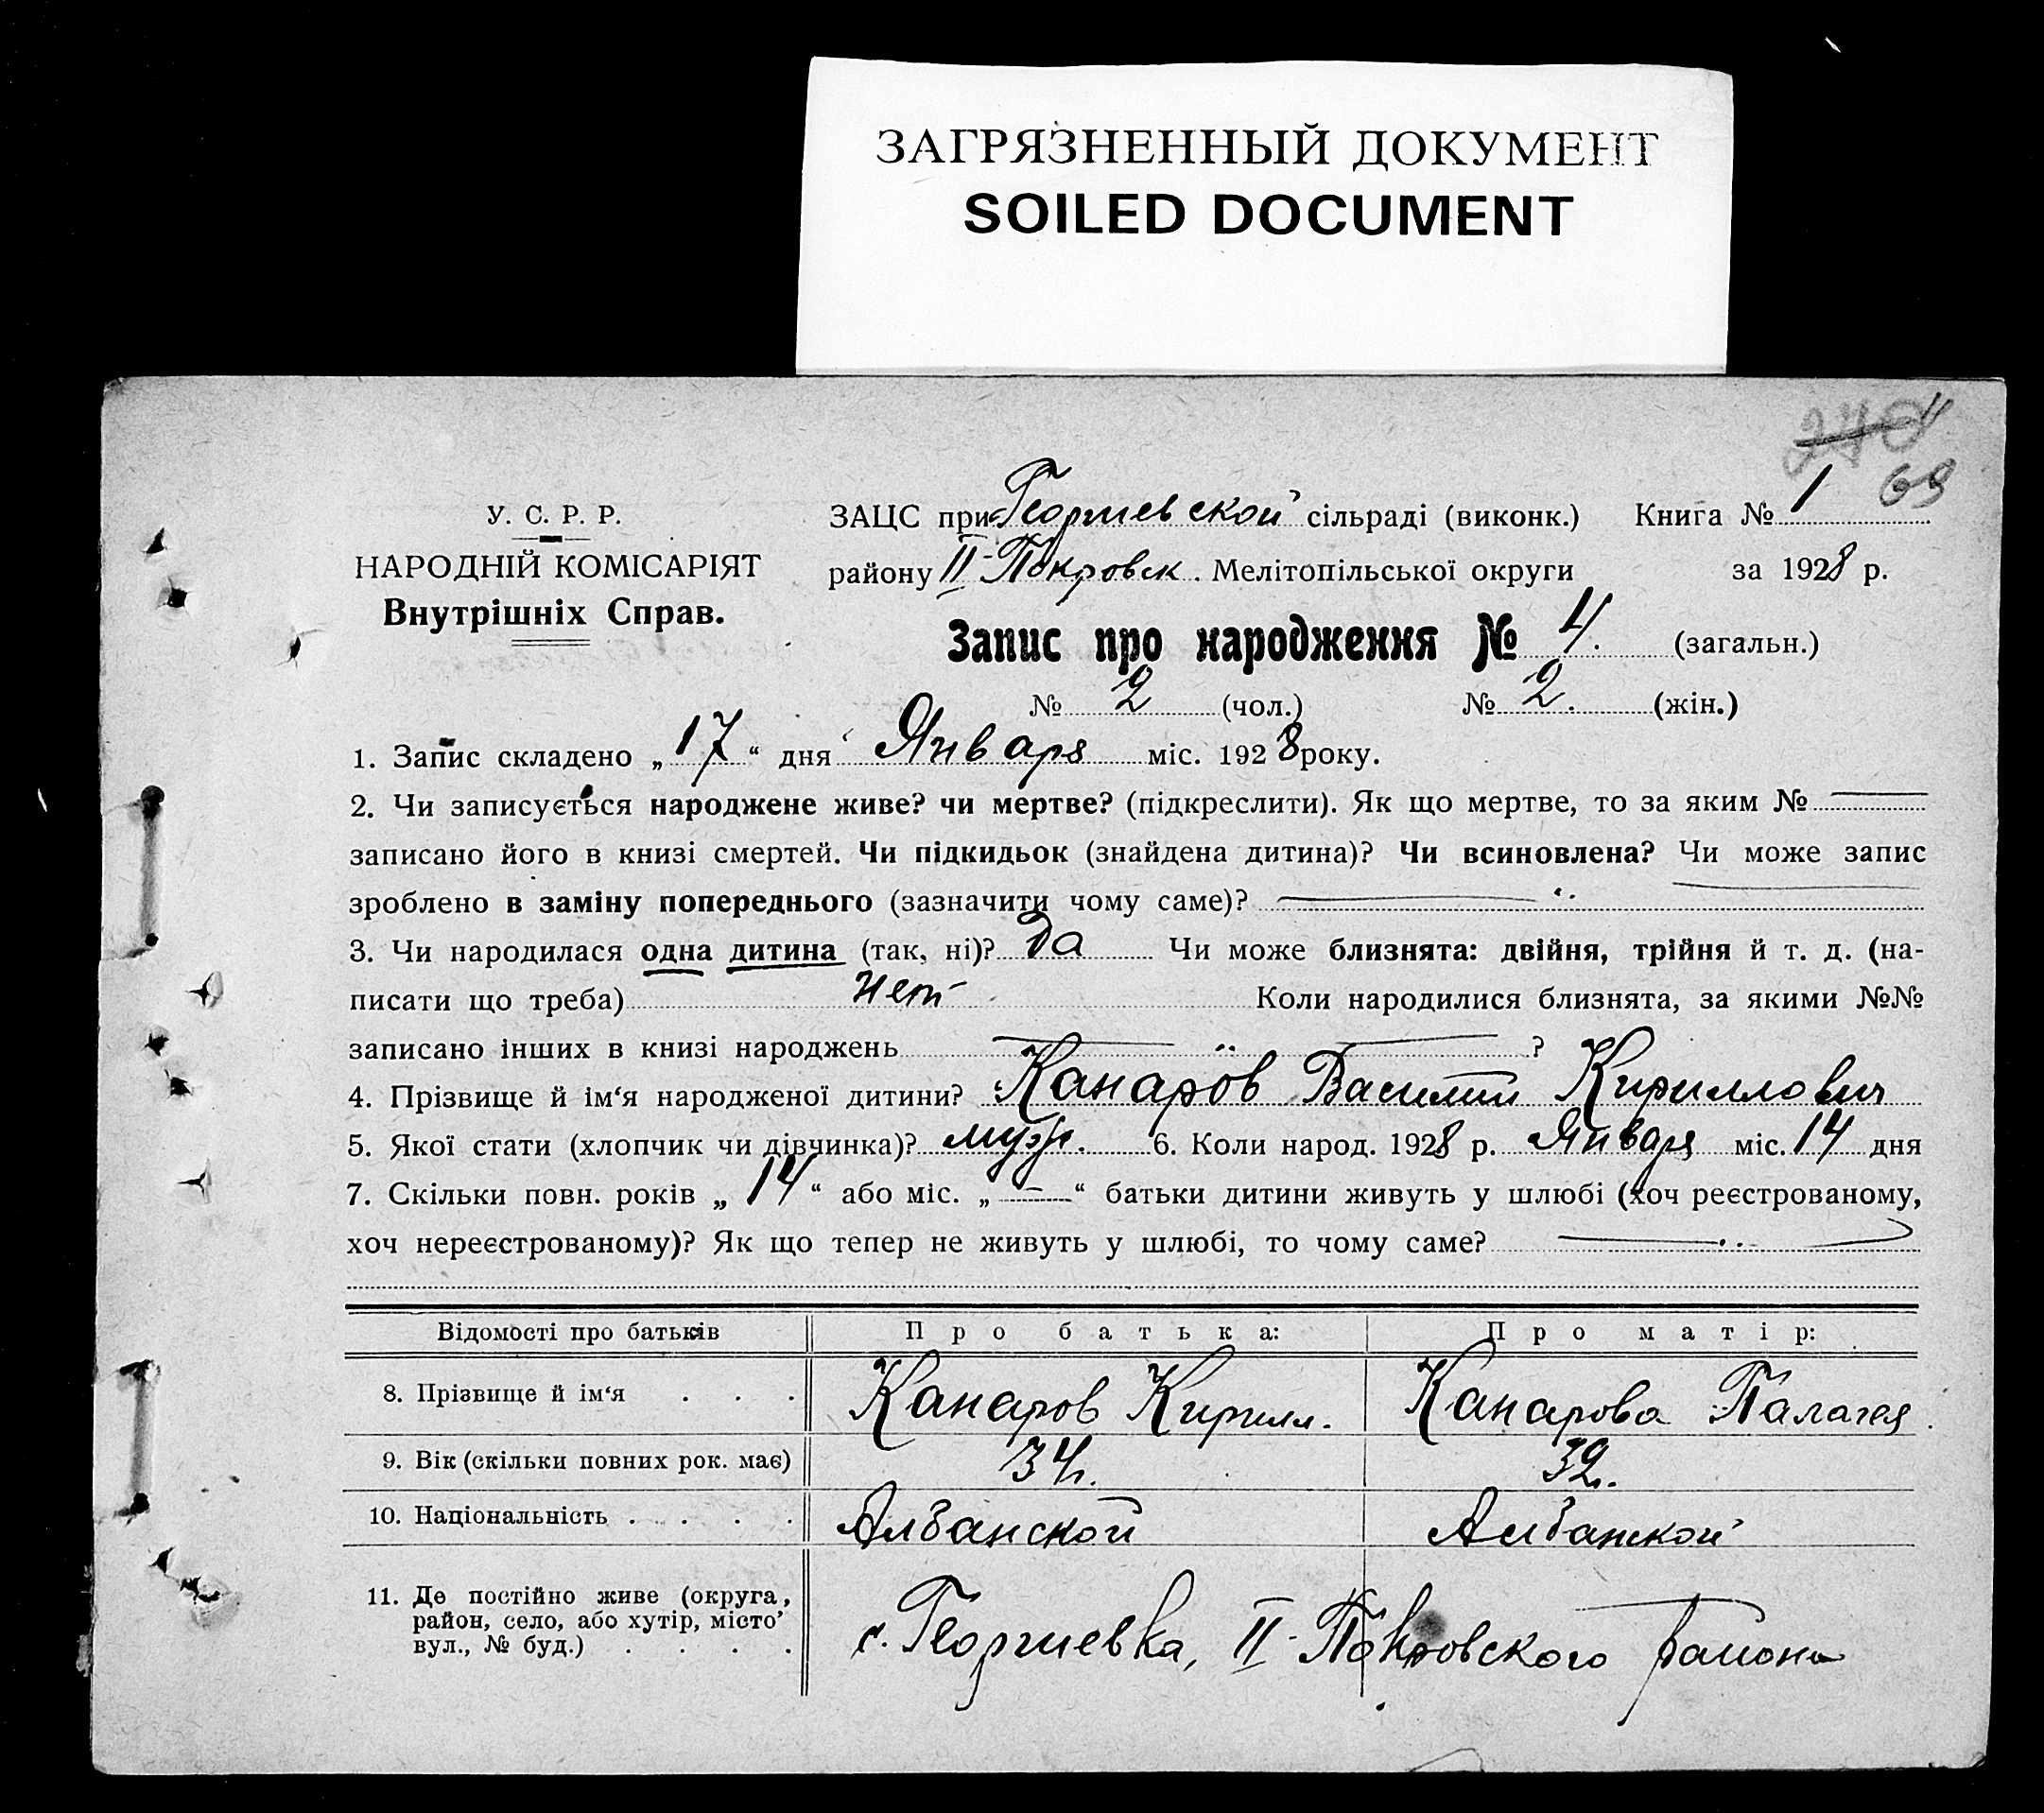 ЗАГРЯЗНЕННЫЙ ДОКУМЕНТ
SOILED DOCUMENT
69
У. С. Р. Р.
НАРОДНІЙ КОМІСАРІЯТ
Внутрішніх Справ.
ЗАЦС при Георгиевской сільраді (виконк.) Книга № 1
району II-Покровск. Мелітопільської округи за 1928 р.
Запис про народження № 4. (загальн.)
№ 2 (чол.) № 2. (жін.)
1. Запис складено „17“ дня Января міс. 1928 року.
2. Чи записується народжене живе? чи мертве? (підкреслити). Як що мертве, то за яким № —
записано його в книзі смертей. Чи підкидьок (знайдена дитина)? Чи всиновлена? Чи може запис
зроблено в заміну попереднього (зазначити чому саме)? —
3. Чи народилася одна дитина (так, ні)? Да Чи може близнята: двійня, трійня й т. д. (на-
писати що треба) нет Коли народилися близнята, за якими №№
записано інших в книзі народжень — ?
4. Прізвище й ім‘я народженої дитини? Канаров Василий Кириллович
5. Якої стати (хлопчик чи дівчинка)? муж. 6. Коли народ. 1928 р. Января міс. 14 дня
7. Скільки повн. років „14“ або міс. „—“ батьки дитини живуть у шлюбі (хоч реєстрованому,
хоч нереєстрованому)? Як що тепер не живуть у шлюбі, то чому саме? —
Відомості про батьків Про батька: Про матір:
8. Прізвище й ім‘я . . . Канаров Кирилл. Канарова Палагея.
9. Вік (скільки повних рок. має) 34г. 32г.
10. Національність . . . . Албанской Албанской
11. Де постійно живе (округа,
район, село, або хутір, місто
вул., № буд.) . . . . с. Георгиевка, II-Покровского района